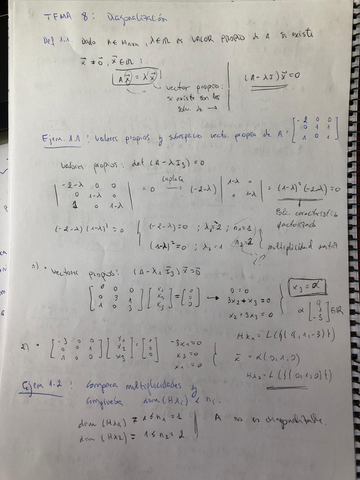 TEMA 8: Diagonalización
Def 1.1 Dado A ∈ Mnxn, λ ∈ ℝ es VALOR PROPIO de A si existe
x⃗ ≠ 0, x⃗ ∈ ℝ:
Ax⃗ = λx⃗
(A-λI)x⃗ = 0
vector propio:
si existe son las
Ejem 1.1: Valores propios y subespacio vect. propio de A = [-2 0 0; 0 1 1; 1 0 1]
Valores propios: det(A-λI3) = 0
|-2-λ 0 0; 0 1-λ 0; 1 0 1-λ| = 0 → (-2-λ) |1-λ 0; 0 1-λ| = (1-λ)² (-2-λ) = 0
Pol. característico
factorizado
(-2-λ)(1-λ)² = 0 { (-2-λ) = 0; λ1 = -2; n1 = 1
(1-λ)² = 0; λ2 = 1 n2 = 2
multiplicidad
1) • Vectores propios: (A-λ1 I3)x⃗ = 0⃗
[0 0 0; 0 3 1; 1 0 3] [x1; x2; x3] = [0; 0; 0] → 0 = 0
3x2 + x3 = 0
x1 + 3x3 = 0
x3 = α
Hλ1 = L({(9,1,-3)})
2) • [-3 0 0; 0 0 1; 1 0 0] [x1; x2; x3] = [0; 0; 0]
-3x1 = 0
x3 = 0
x1 = 0
x⃗ = α(0,1,0)
Hλ2 = L({(0,1,0)})
Ejem 1.2: Compara multiplicidades y
comprueba dim(Hλi) ≤ ni
dim(Hλ1) = 1 ≤ n1 = 1
dim(Hλ2) = 1 ≤ n2 = 2
A no es diagonalizable